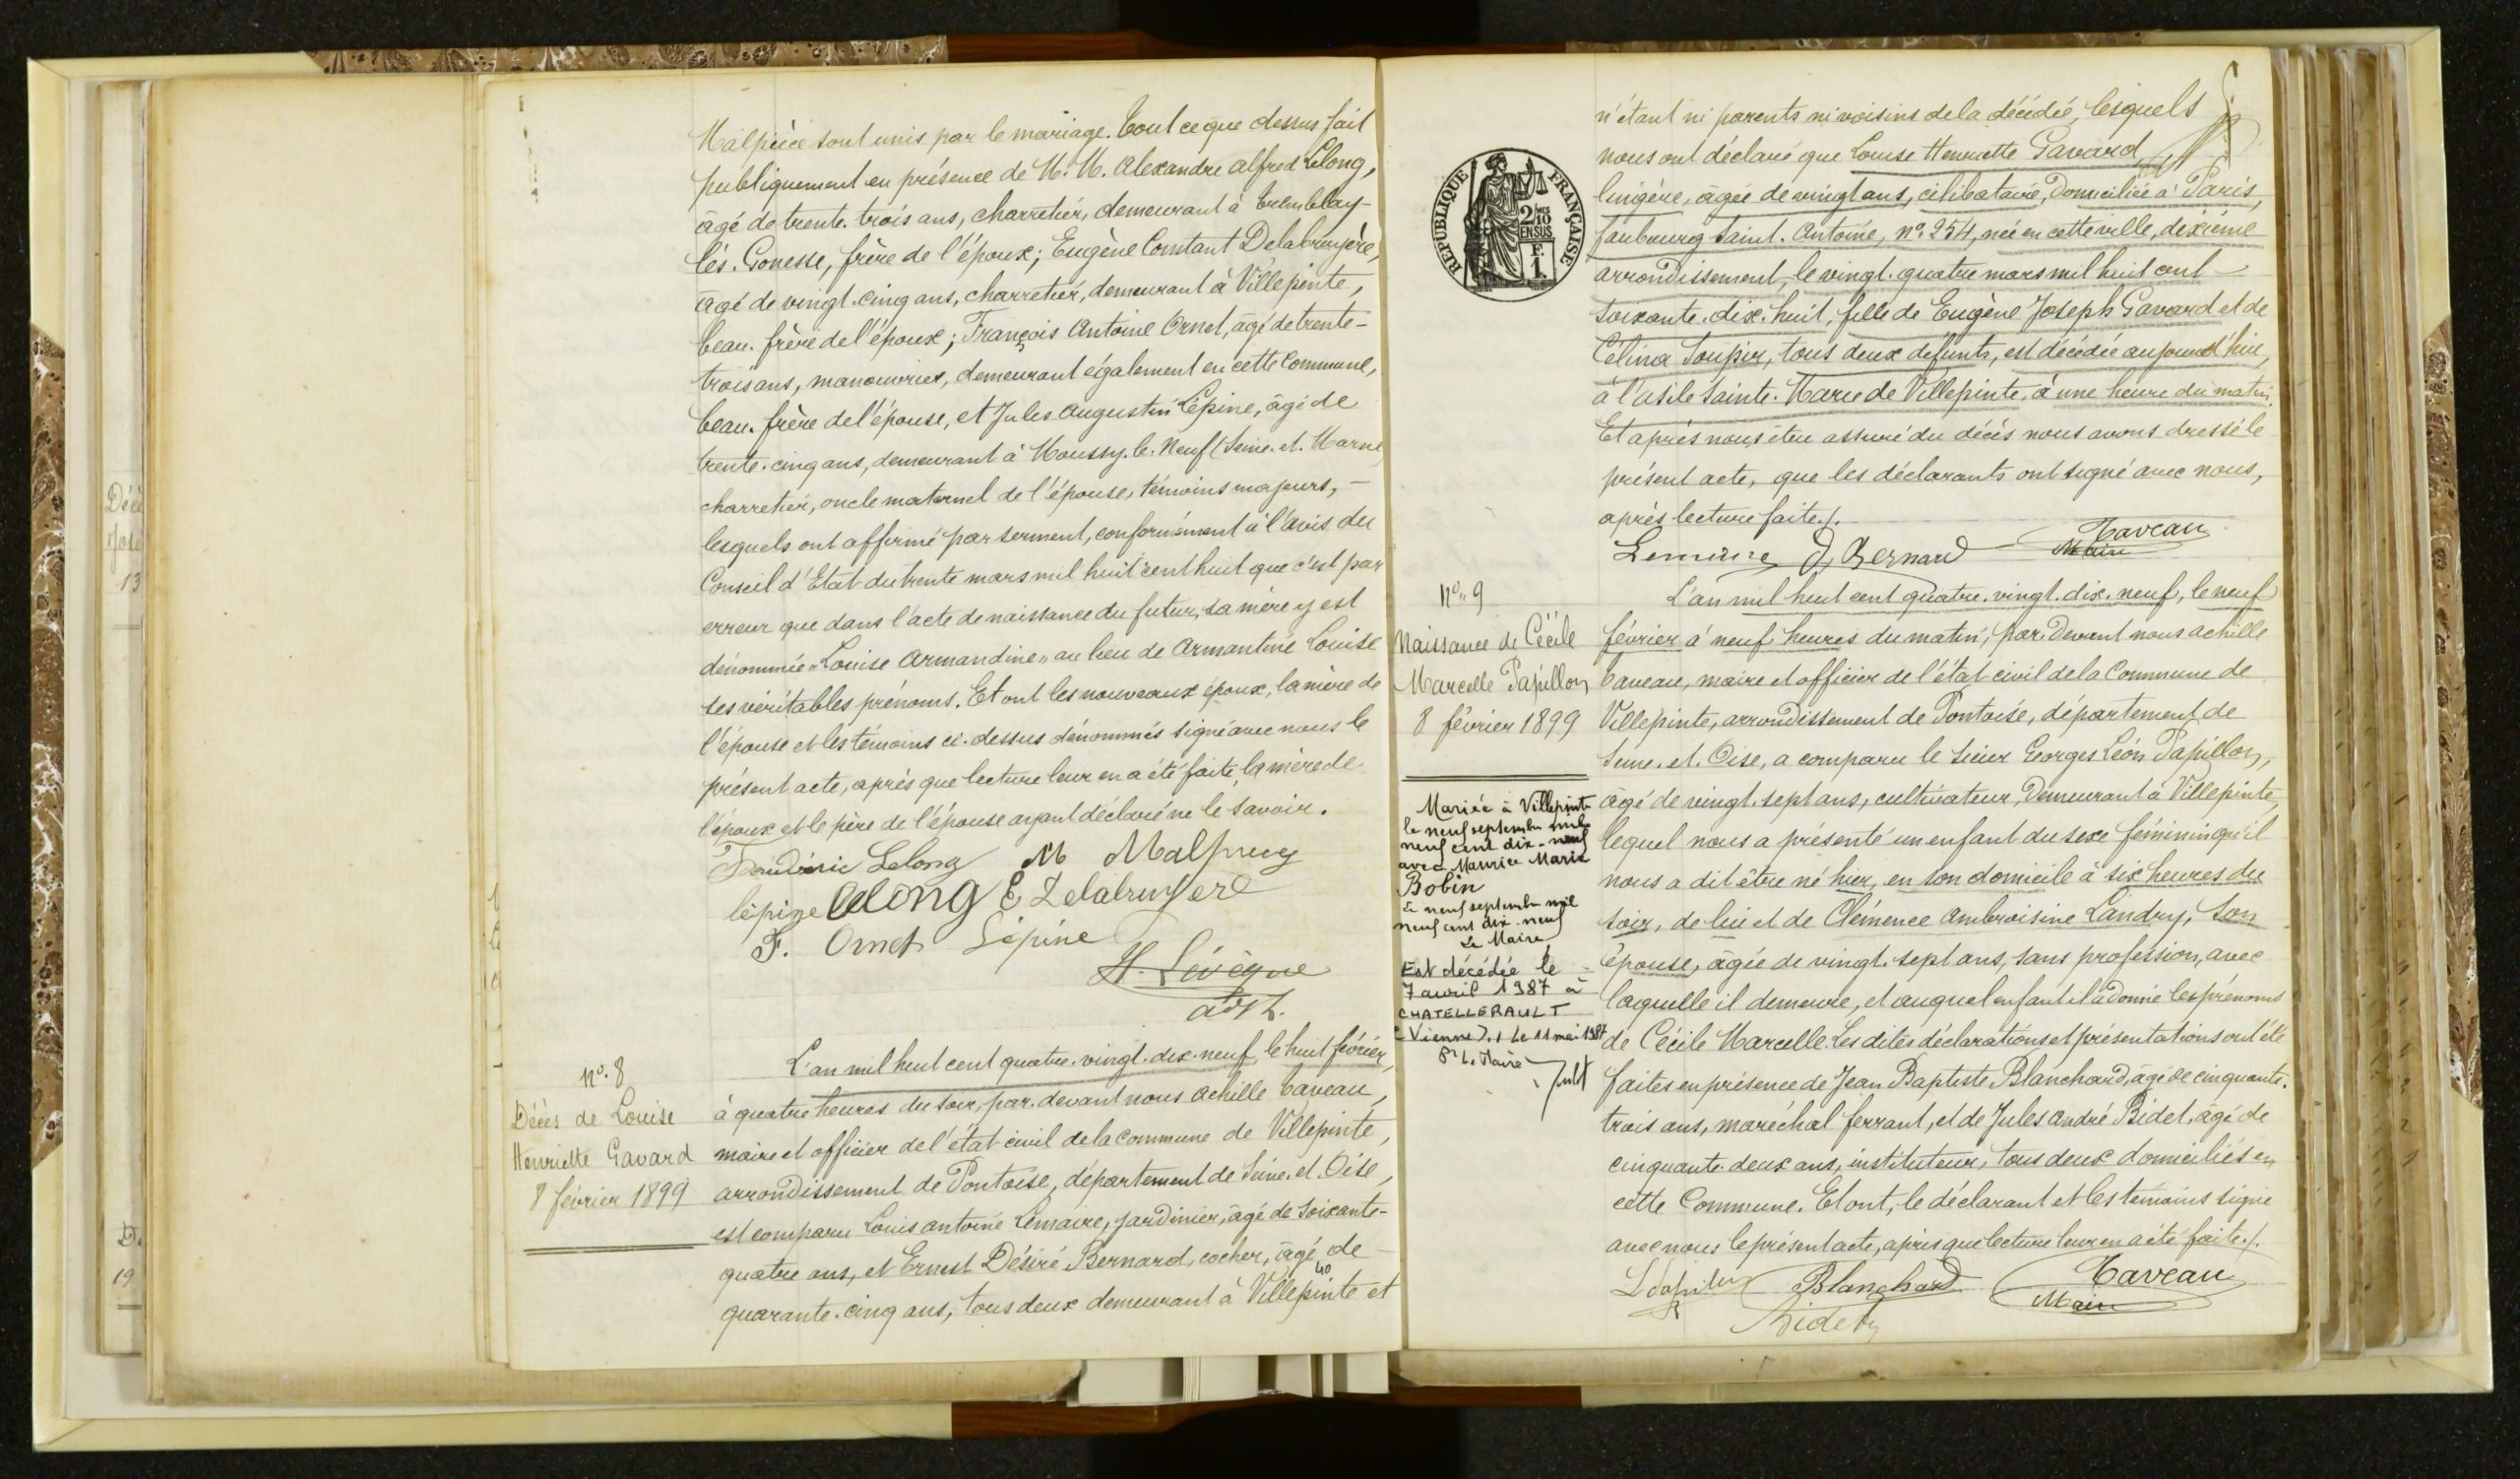 Malpièce sont unis par le mariage. Tout ce que dessus fait
publiquement en présence de M. M. Alexandre Alfred Lelong,
âgé de trente-trois ans, charretier, demeurant à Tremblay-
lès-Gonesse, frère de l'époux; Eugène Constant Delabruyère,
âgé de vingt-cinq ans, charretier, demeurant à Villepinte,
beau-frère de l'époux; François Antoine Ornet, âgé de trente-
trois ans, manouvrier, demeurant également en cette Commune,
beau-frère de l'épouse, et Jules Augustin Lépine, âgé de
trente-cinq ans, demeurant à Moussy-le-Neuf (Seine-et-Marne
charretier, oncle maternel de l'épouse, témoins majeurs, -
lesquels ont affirmé par serment, conformément à l'avis du
Conseil d'Etat du trente mars mil huit cent huit que c'est par
erreur que dans l'acte de naissance du futur, sa mère y est
dénommée "Louise Armandine" au lieu de Armantine Louise
ses véritables prénoms. Et ont les nouveaux époux, la mère de
l'épouse et les témoins ci-dessus dénommés signé avec nous le
présent acte, après que lecture leur en a été faite, la mère de
l'époux et le père de l'épouse ayant déclaré ne le savoir.
Lelong M Malpiecy
lépine Lelong E Delabruyere
F. Ornet Lépine
H. Lévêque
adjt.
No. 8
Décès de Louise
Henriette Gavard
8 février 1899
L'an mil huit cent quatre-vingt-dix-neuf, le huit février,
à quatre heures du soir, par-devant nous Achille Taveau,
maire et officier de l'état civil de la commune de Villepinte,
arrondissement de Pontoise, département de Seine-et-Oise,
est comparu Louis Antoine Lemaire, jardinier, âgé de soixante-
quatre ans, et Ernest Désiré Bernard, cocher, âgé de -
40
quarante-cinq ans, tous deux demeurant à Villepinte et
n'étant ni parents ni voisins de la décédée, lesquels
nous ont déclaré que Louise Henriette Gavard,
lingère, âgée de vingt ans, célibataire, domiciliée à Paris,
faubourg Saint-Antoine, no. 254, née en cette ville, dixième
arrondissement, le vingt-quatre mars mil huit cent -
soixante-dix-huit, fille de Eugène Joseph Gavard et de
Célina Soupir, tous deux défunts, est décédée aujourd'hui,
à l'asile Sainte-Marie de Villepinte, à une heure du matin.
Et après nous être assuré du décès nous avons dressé le
présent acte, que les déclarants ont signé avec nous,
après lecture faite./.
RÉPUBLIQUE FRANÇAISE
2/10 EN SUS
F. 1
Lemaire D, Bernard Taveau
Maire
No. 9
Naissance de Cécile
Marcelle Papillon
8 février 1899
Mariée à Villepinte
le neuf septembre mil
neuf cent dix-neuf
avec Maurice Marie
Bobin
Le neuf septembre mil
neuf cent dix-neuf
Le Maire
Est décédée le
7 avril 1987 à
CHATELLERAULT
(Vienne)./. Le 11 mai 1987
Pr Le Maire
L'an mil huit cent quatre-vingt-dix-neuf, le neuf
février à neuf heures du matin, par-devant nous Achille
Taveau, maire et officier de l'état civil de la Commune de
Villepinte, arrondissement de Pontoise, département de
Seine-et-Oise, a comparu le sieur Georges Léon Papillon,
âgé de vingt-sept ans, cultivateur, demeurant à Villepinte,
lequel nous a présenté un enfant du sexe féminin qu'il
nous a dit être né hier, en son domicile à six heures du
soir, de lui et de Clémence Ambroisine Landry, son
épouse, âgée de vingt-sept ans, sans profession, avec
laquelle il demeure, et auquel enfant il a donné les prénoms
de Cécile Marcelle. Les dites déclarations et présentations ont été
faites en présence de Jean Baptiste Blanchard, âgé de cinquante-
trois ans, maréchal ferrant, et de Jules André Bidet, âgé de
cinquante-deux ans, instituteur, tous deux domiciliés en
cette Commune. Et ont, le déclarant et les témoins signé
avec nous le présent acte, après que lecture leur en a été faite./.
Blanchard Taveau
Maire
Bidet